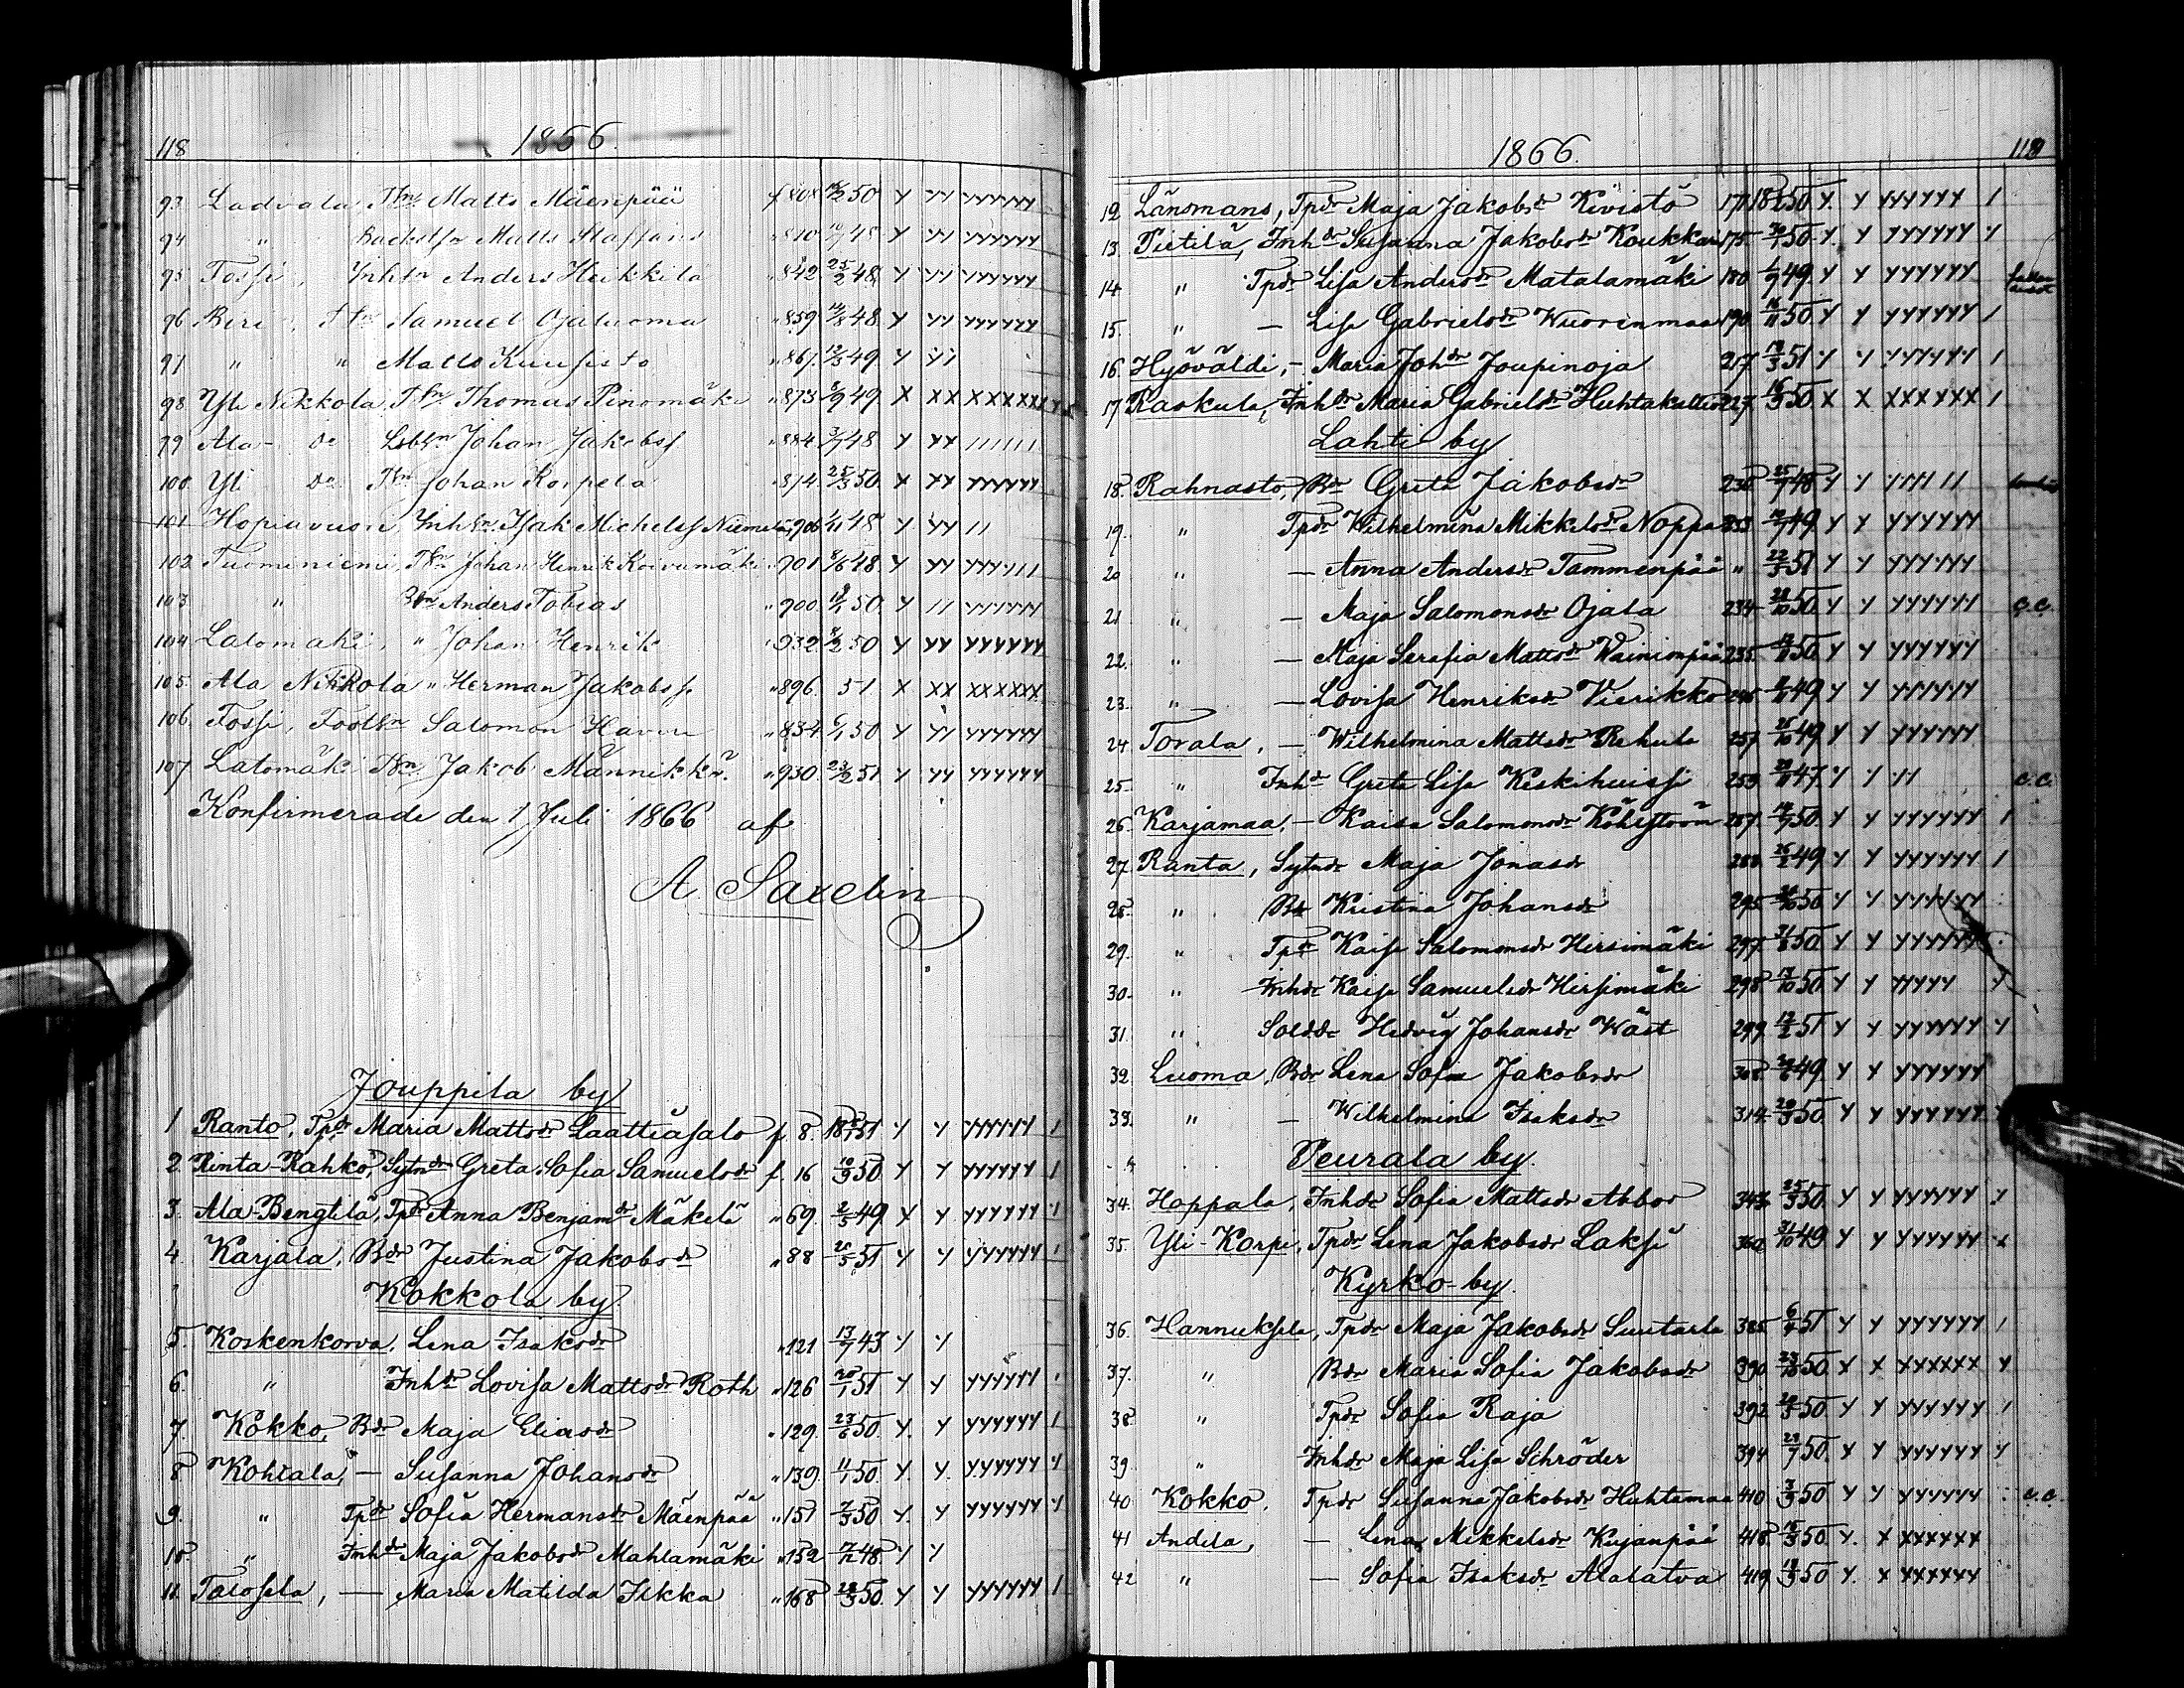 118
1866.
93 Ladvala, Tpn Matts Mäenpää f 808 50 Y YY YYYYYY
94 " Backstsn Matts Staffans " 810 48 Y YY YYYYYY
95 Fossi, Inhsn Anders Heikkilä " 842 25/2 48 Y YY YYYYYY
96 Beri, Samuel Ojaluoma " 859 48 Y YY YYYYYY
97 " " Matts Kuusisto " 867 12/3 49 Y YY
98 Yli Nikkola, Thomas Pinomäki " 873 49 X XX XXXXXX
99 Ala- Do Johan Jakobss " 884 3/7 48 Y XX
100 Yli Do Johan Korpela " 874 25/3 50 X XX YYYYYY
101 Hopiavuori, Inhsn Isak Michelss Niemelä " 906 48 Y YY 11
102 Tuominiemi, Johan Henrik Koivumäki " 901 8/6 48 Y YY
103 " Bsn Anders Tobias " 900 50 Y 11 YYYYYY
104 Latomäki, " Johan Henrik " 932 50 Y XX YYYYYY
105 Ala Nikkola " Herman Jakobss " 896 51 X XX XXXXXX
106 Fossi, Salomon Havu " 834 6/1 50 Y YY YYYYYY
107 Latomäki Jakob Männikkö " 930 23/2 51 Y YY YYYYYY
Konfirmerade den 1 Juli 1866 af
A. Saxelin
Jouppila by
1 Ranto, Tpdr Maria Mattsdr Laattiasalo f. 8. 51 Y Y YYYYYY 1
2 Rinta-Rahko, Sytndr Greta Sofia Samuelsdr f. 16 10/9 50 Y Y YYYYYY 1
3. Ala Bengtilä, Tpdr Anna Benjamdr Mäkelä " 69. 2/5 49 Y Y YYYYYY 1
4. Karjala, Bdr Justina Jakobsdr " 88 51 Y Y YYYYYY 1
Kokkola by
5. Koskenkorva, Lena Isaksdr " 121 13/7 43 Y Y
6. " Inhdr Lovisa Mattsdr Roth " 126 20/1 51 Y Y YYYYYY 1
7. Kokko, Bdr Maja Eliasdr " 129. 23/6 50 Y. Y YYYYYY 1
8 Kohtala, — Susanna Johansdr " 139. 11/1 50 Y. Y. YYYYYY Y
9. " Tpdr Sofia Hermansdr Mäenpää " 151 7/3 50 Y. Y YYYYYY Y
10. " Inhdr Maja Jakobsdr Mahlamäki " 152 48. Y Y
11. Talosela, — Maria Matilda Ikka " 168 28/3 50. Y Y YYYYYY 1
1866.
119
12. Länsmans, Tpdr Maja Jakobsdr Kivistö 171 50 Y. Y YYYYYY 1
13. Pietilä, Inhdr Susanna Jakobsdr Koukkari 175. 30/1 50. Y. Y YYYYYY Y
14. " Tpdr Lisa Andersdr Matalamäki 180 1/9 49. Y Y YYYYYY
15. " — Lisa Gabrielsdr Wuorenmaa 190 16/11 50. Y Y YYYYYY 1
16. Hyöväldi, — Maria Johdr Joupinoja 217 51 Y Y YYYYYY 1
17. Raskula, Inhdr Maria Gabrielsdr Huhtakallio 227 50 X X XXXXXX 1
Lahti by
18. Rahnasto, Bdr Greta Jakobsdr 230 25/7 48 Y Y
19. " Tpdr Wilhelmina Mikkelsdr Noppa 233 49 Y Y YYYYYY
20 " — Anna Andersdr Tammenpää " 22/3 51 Y Y YYYYYY
21 " — Maja Salomonsdr Ojala 234 28/10 50 Y Y YYYYYY c.c.
22. " — Maja Serafia Mattsdr Wainionpää 235. 50 Y Y YYYYYY
23. " — Lovisa Henriksdr Vierikko 49 Y Y YYYYYY
24. Torala, — Wilhelmina Mattsdr Rekula 257. 25/10 49 Y Y YYYYYY
25. " Inhdr Greta Lisa Keskihuisi 253 47. Y Y YY c.c.
26. Karjamaa, — Kaisa Salomonsdr 267. 14/7 50. Y Y YYYYYY 1
27. Ranta, Sytndr Maja Jonasdr 26/2 49 Y Y YYYYYY 1
28. " Bdr Kristina Johansdr 295 50 Y Y YYYYYY
29. " Tpdr Kaisa Salomonsdr Hirsimäki 297. 50. Y Y YYYYYY
30. " Inhdr Kaisa Samuelsdr Hirsimäki 298 17/10 50 Y Y YYYYY Y
31. " Solddr Hedvig Johansdr Wäst 299. 51 Y Y YYYYYY Y
32. Luoma, Bdr Lena Sofia Jakobsdr 308 49 Y Y YYYYYY
33. " — Wilhelmina Isaksdr 314 50. Y Y YYYYYY
Peurala by.
34. Hoppala, Inhdr Sofia Mattsdr Abbor 343 25/3 50. Y Y YYYYYY Y
35. Yli-Korpi, Tpdr Lena Jakobsdr Laksi 360 31/10 49 Y Y YYYYYY
Kyrko-by.
36. Hannuksela, Tpdr Maja Jakobsdr Suutarla 385 6/4 51 Y Y YYYYYY 1
37. " Bdr Maria Sofia Jakobsdr 390. 23/10 50. Y X XXXXXX Y
38 " Tpdr Sofia Raja 392 50 Y Y YYYYYY 1
39. " Inhdr Maja Lisa Schröder 394 50. Y Y YYYYYY Y
40. Kokko, Tpdr Susanna Jakobsdr Huhtamaa 410 3/3 50 Y Y YYYYYY c.c.
41 Andila, — Lena Mikkelsdr Kujanpää 418. 15/3 50. Y. X XXXXXX
42 " — Sofia Isaksdr Alalatva 419. 50 Y. X XXXXXX